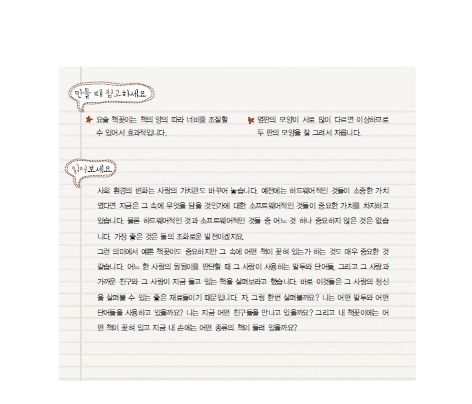 만들 때 참고하세요
요술 책꽂이는 책의 양의 따라 너비를 조절할
수 있어서 효과적입니다.
옆판의 모양이 서로 많이 다르면 이상하므로
두 판의 모양을 잘 그려서 자릅니다.
읽어보세요
사회 환경의 변화는 사람의 가치관도 바꾸어 놓습니다. 예전에는 하드웨어적인 것들이 소중한 가치
였다면 지금은 그 속에 무엇을 담을 것인가에 대한 소프트웨어적인 것들이 중요한 가치를 차지하고
있습니다. 물론 하드웨어적인 것과 소프트웨어적인 것들 중 어느 것 하나 중요하지 않은 것은 없습
니다. 가장 좋은 것은 둘의 조화로운 발전이겠지요.
그런 의미에서 예쁜 책꽂이도 중요하지만 그 속에 어떤 책이 꽂혀 있는가 하는 것도 매우 중요한 것
같습니다. 어느 한 사람의 됨됨이를 판단할 때 그 사람이 사용하는 말투와 단어들, 그리고 그 사람과
가까운 친구와 그 사람이 지금 들고 있는 책을 살펴보라고 했습니다. 바로 이것들은 그 사람의 정신
을 살펴볼 수 있는 좋은 재료들이기 때문입니다. 자, 그럼 한번 살펴볼까요? 나는 어떤 말투와 어떤
단어들을 사용하고 있을까요? 나는 지금 어떤 친구들을 만나고 있을까요? 그리고 내 책꽂이에는 어
떤 책이 꽂혀 있고 지금 내 손에는 어떤 종류의 책이 들려 있을까요?